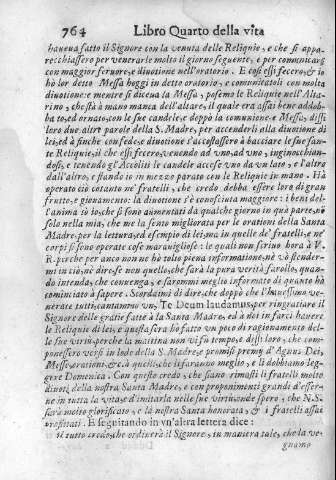 764 Libro Quarto della vita
haueua fatto il Signore con la venuta delle Reliquie, e che si appa-
recchiassero per venerarle molto il giorno seguente, e per comunicarsi
con maggior feruore, e diuotione nell'oratorio. E così essi fecero, & io
hò lor detto Messa hoggi in detto oratorio, e comunicatoli con molta
diuotione: e mentre si diceua la Messa, posemo le Reliquie nell'Alta-
rino, che stà à mano manca dell'altare, il quale era assai bene addob-
bato, ed ornato, con le sue candele: e doppò la comunione, e Messa, dissi
loro due altre parole della S. Madre, per accenderli alla diuotione di
lei, ed à finche con fede, e diuotione s'accostassero à bacciare le sue san-
te Reliquie, il che essi fecero, venendo ad vno, ad vno, inginocchian-
dosi, e tenendo gl'Acoliti le candele accese vno da vn lato, e l'altro
dall'altro, e stando io in mezzo parato con le Reliquie in mano. Hà
operato ciò cotanto ne' fratelli, che credo debba essere loro di gran
frutto, e giouamento: la diuotione s'è conosciuta maggiore: i beni del-
l'anima iò io, che si sono aumentati da qualche giorno in quà parte, nò
solo nella mia, che me la sento migliorata per le orationi della Santa
Madre, per la lettura, ed esempio di lei, ma in quelle de' fratelli, e ne'
corpi si sono operate cose marauigliose: le quali non scriuo hora à V.
R. perche per anco non ne hò tolto piena informatione, nè vò stender-
mi in ciò, nè dire se non quello, che sarà la pura verità sarollo, quan-
do intenda, che conuenga, e saremmi meglio informato di quanto hò
cominciato à sapere. Scordami di dire, che doppò che l'hauessimo ve-
nerate tutti, cantammo vn, Te Deum laudamus, per ringratiare il
Signore delle gratie fatte à la Santa Madre, ed à noi in farci hauere
le Reliquie di lei, e questa sera hò fatto vn poco di ragionamento del-
le sue virtù, perche la mattina non vi fù tempo, e dissi loro, che com-
ponessero versi in lode della S. Madre, e promisi premij d'Agnus Dei,
Messe, orationi &c. à quelli, che li faranno meglio, e li dobbiamo leg-
gere Domenica. Con questo credo, che siano rimasti li fratelli molto
diuoti della nostra Santa Madre, e con proponimenti grandi d'esser-
le in tutta la vita, e d'imitarla nelle sue virtù, onde spero, che N.S.
sarà molto glorificato, e la nostra Santa honorata, & i fratelli assai
profittati. E seguitando in vn'altra lettera dice:
Il tutto credo, che ordinerà il Signore, in maniera tale, che la ve-
gnamo